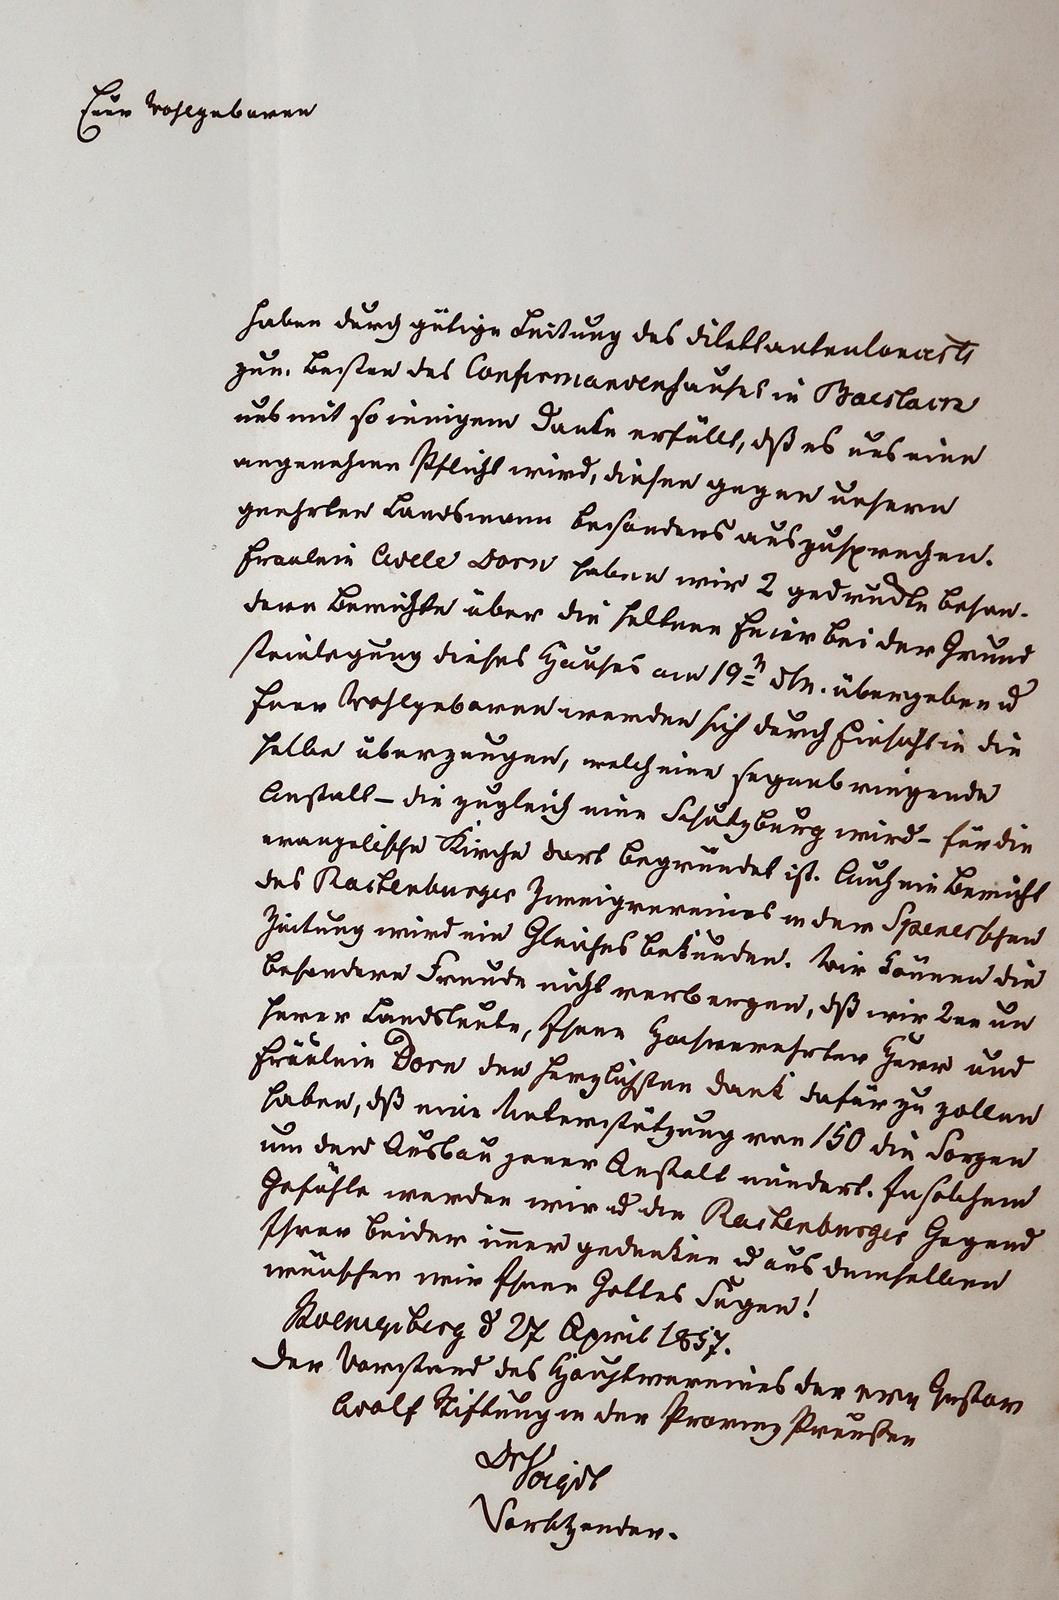 Euer Wohlgeboren
haben durch gütige Leitung des Dilettantenconcerts
zum Besten des Confirmandenhauses in Baeslack
uns mit so innigem Danke erfüllt, dß es uns eine
angenehme Pflicht wird, diesen gegen unsern
geehrten Landsmann besonders auszusprechen.
Fraulein Adele Dorn haben wir 2 gedruckte beson-
dere Berichte über die seltene Feier bei der Grund
steinlegung dieses Hauses am 19n dM. übergeben u
Euer Wohlgeboren werden sich durch Einsicht in die
selbe überzeugen, welch eine segenbringende
Anstalt – die zugleich eine Schutzburg wird – für die
evangelische Kirche dort begründet ist. Auch ein Bericht
des Rastenburger Zweigvereines in der Spenerschen
Zeitung wird ein Gleiches bekunden. Wir können die
besondere Freude nicht verbergen, dß wir 2en un
serer Landsleute, Ihnen Hochverehrter Herr und
Fräulein Dorn den herzlichsten Dank dafür zu zollen
haben, dß eine Unterstützung von 150 die Sorgen
um den Ausbau jener Anstalt mindert. In solchem
Gefühle werden wir u die Rastenburger Gegend
Ihrer beider immer gedenken u aus demselben
wünschen wir Ihnen Gottes Segen!
Koenigsberg d 27 April 1857.
Der Vorstand des Hauptvereines der evg Gustav
Adolf Stiftung in der Provinz Preußen
Dr Voigdt
Vorsitzender.